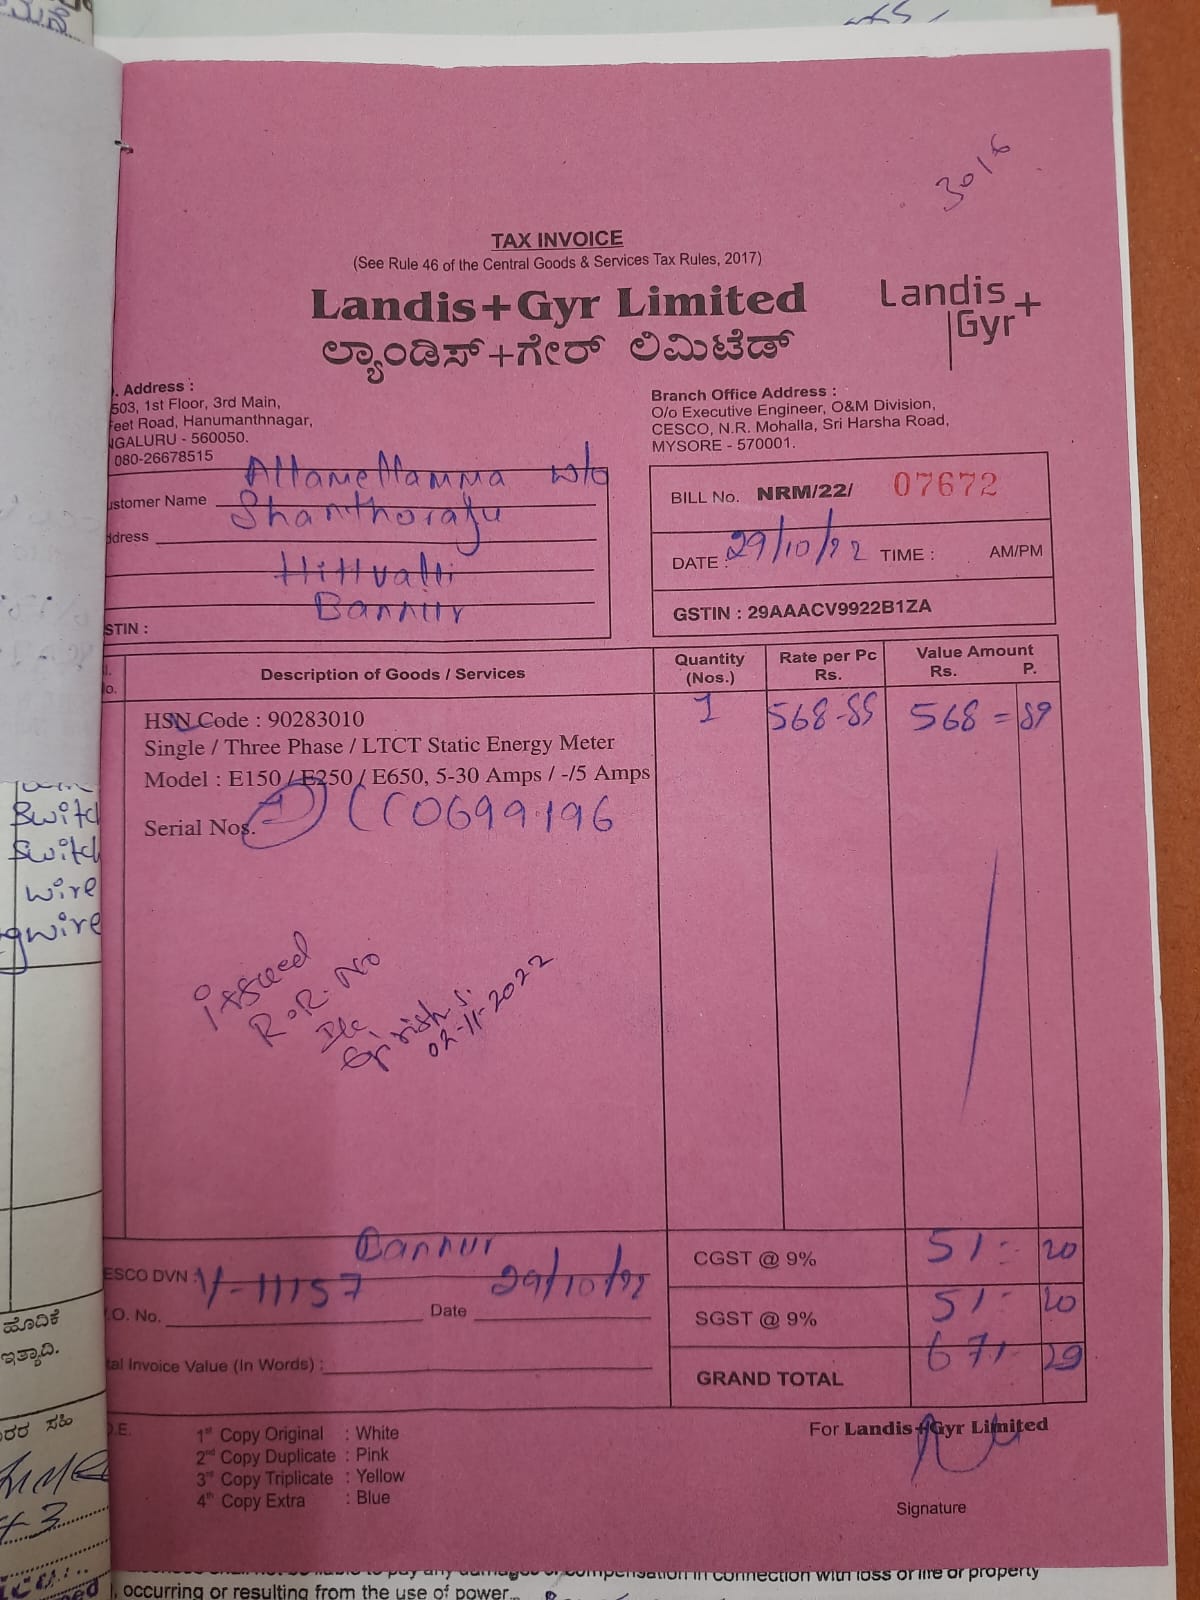 3016
TAX INVOICE
(See Rule 46 of the Central Goods & Services Tax Rules, 2017)
Landis+Gyr Limited
ಲ್ಯಾಂಡಿಸ್+ಗೇರ್ ಲಿಮಿಟೆಡ್
Landis
Gyr+
. Address :
503, 1st Floor, 3rd Main,
eet Road, Hanumanthnagar,
NGALURU - 560050.
080-26678515
Branch Office Address :
O/o Executive Engineer, O&M Division,
CESCO, N.R. Mohalla, Sri Harsha Road,
MYSORE - 570001.
ustomer Name
w/o
Shanthoraju
ddress
Hittuvalli
Bannur
STIN :
BILL No. NRM/22/ 07672
DATE : 29/10/22 TIME : AM/PM
GSTIN : 29AAACV9922B1ZA
Description of Goods / Services Quantity (Nos.) Rate per Pc Rs. Value Amount Rs. P.
HSN Code : 90283010 1 568-89 568 = 89
Single / Three Phase / LTCT Static Energy Meter
Model : E150 / E250 / E650, 5-30 Amps / -/5 Amps
Serial Nos. 0699196
issued
R.R. No
Girish S.
02-11-2022
Bannur
ESCO DVN : V-11157 29/10/22
.O. No. Date
tal Invoice Value (In Words) :
CGST @ 9% 51 = 20
SGST @ 9% 51 = 20
GRAND TOTAL 671 - 29
O.E.
1st Copy Original : White
2nd Copy Duplicate : Pink
3rd Copy Triplicate : Yellow
4th Copy Extra : Blue
For Landis+Gyr Limited
Signature
Switch
Switch
wire
gwire
ಹೊದಿಕೆ
ಇತ್ಯಾದಿ.
ದಾರರ ಸಹಿ
compensation in connection with loss or life or property
, occurring or resulting from the use of power